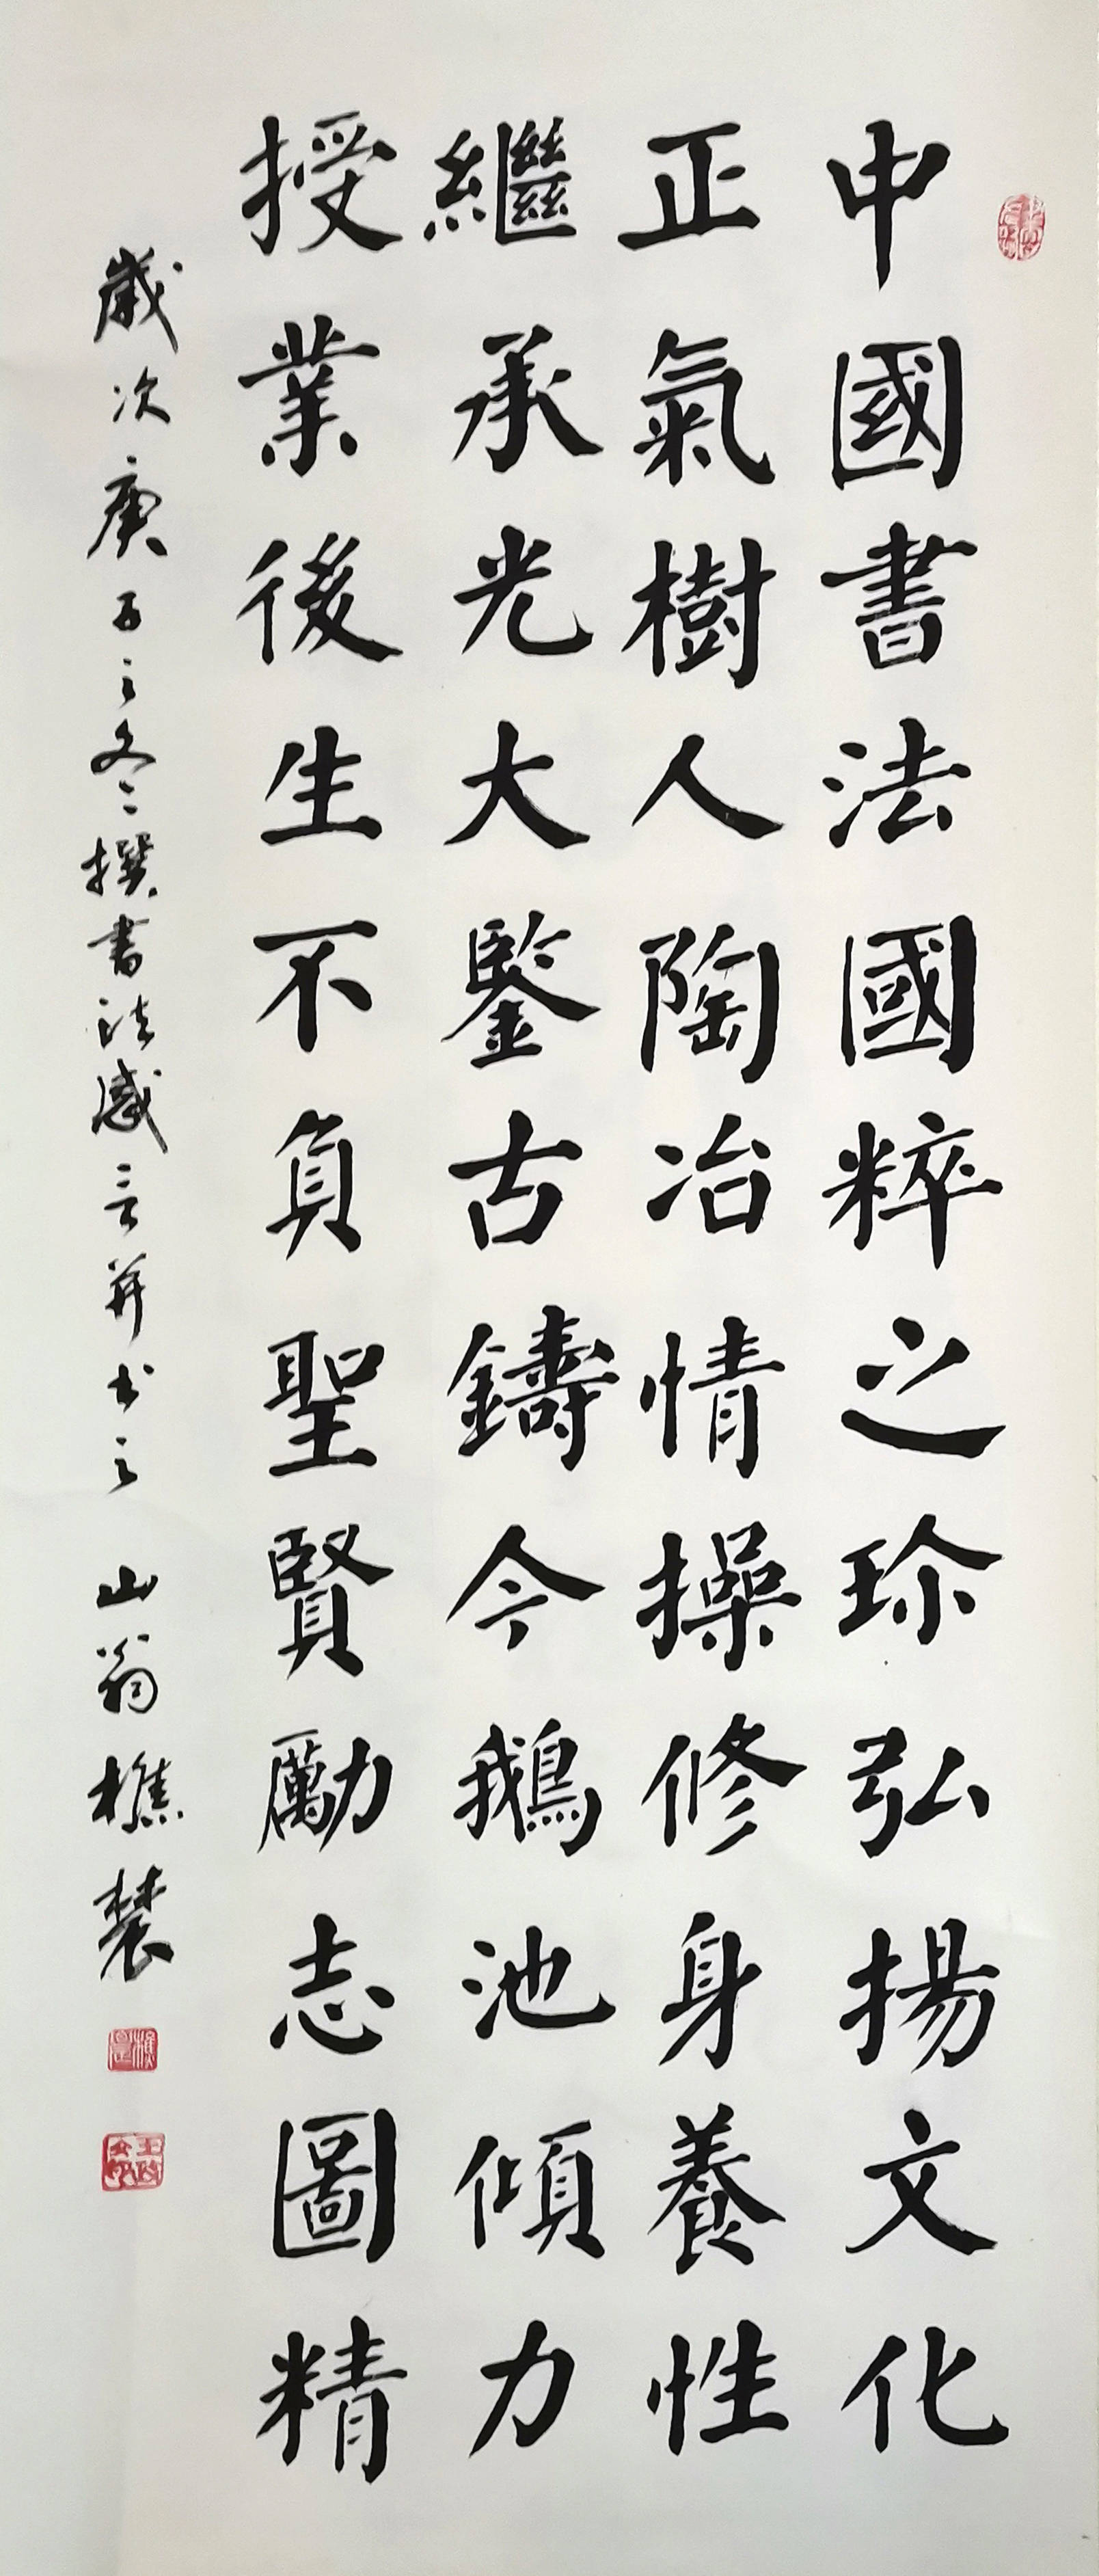 中國書法國粹之珍弘揚文化
正氣樹人陶冶情操修身養性
繼承光大鑒古鑄今鵝池傾力
授業後生不負聖賢勵志圖精
歲次庚子之冬撰書法感言并书之 山翁樵